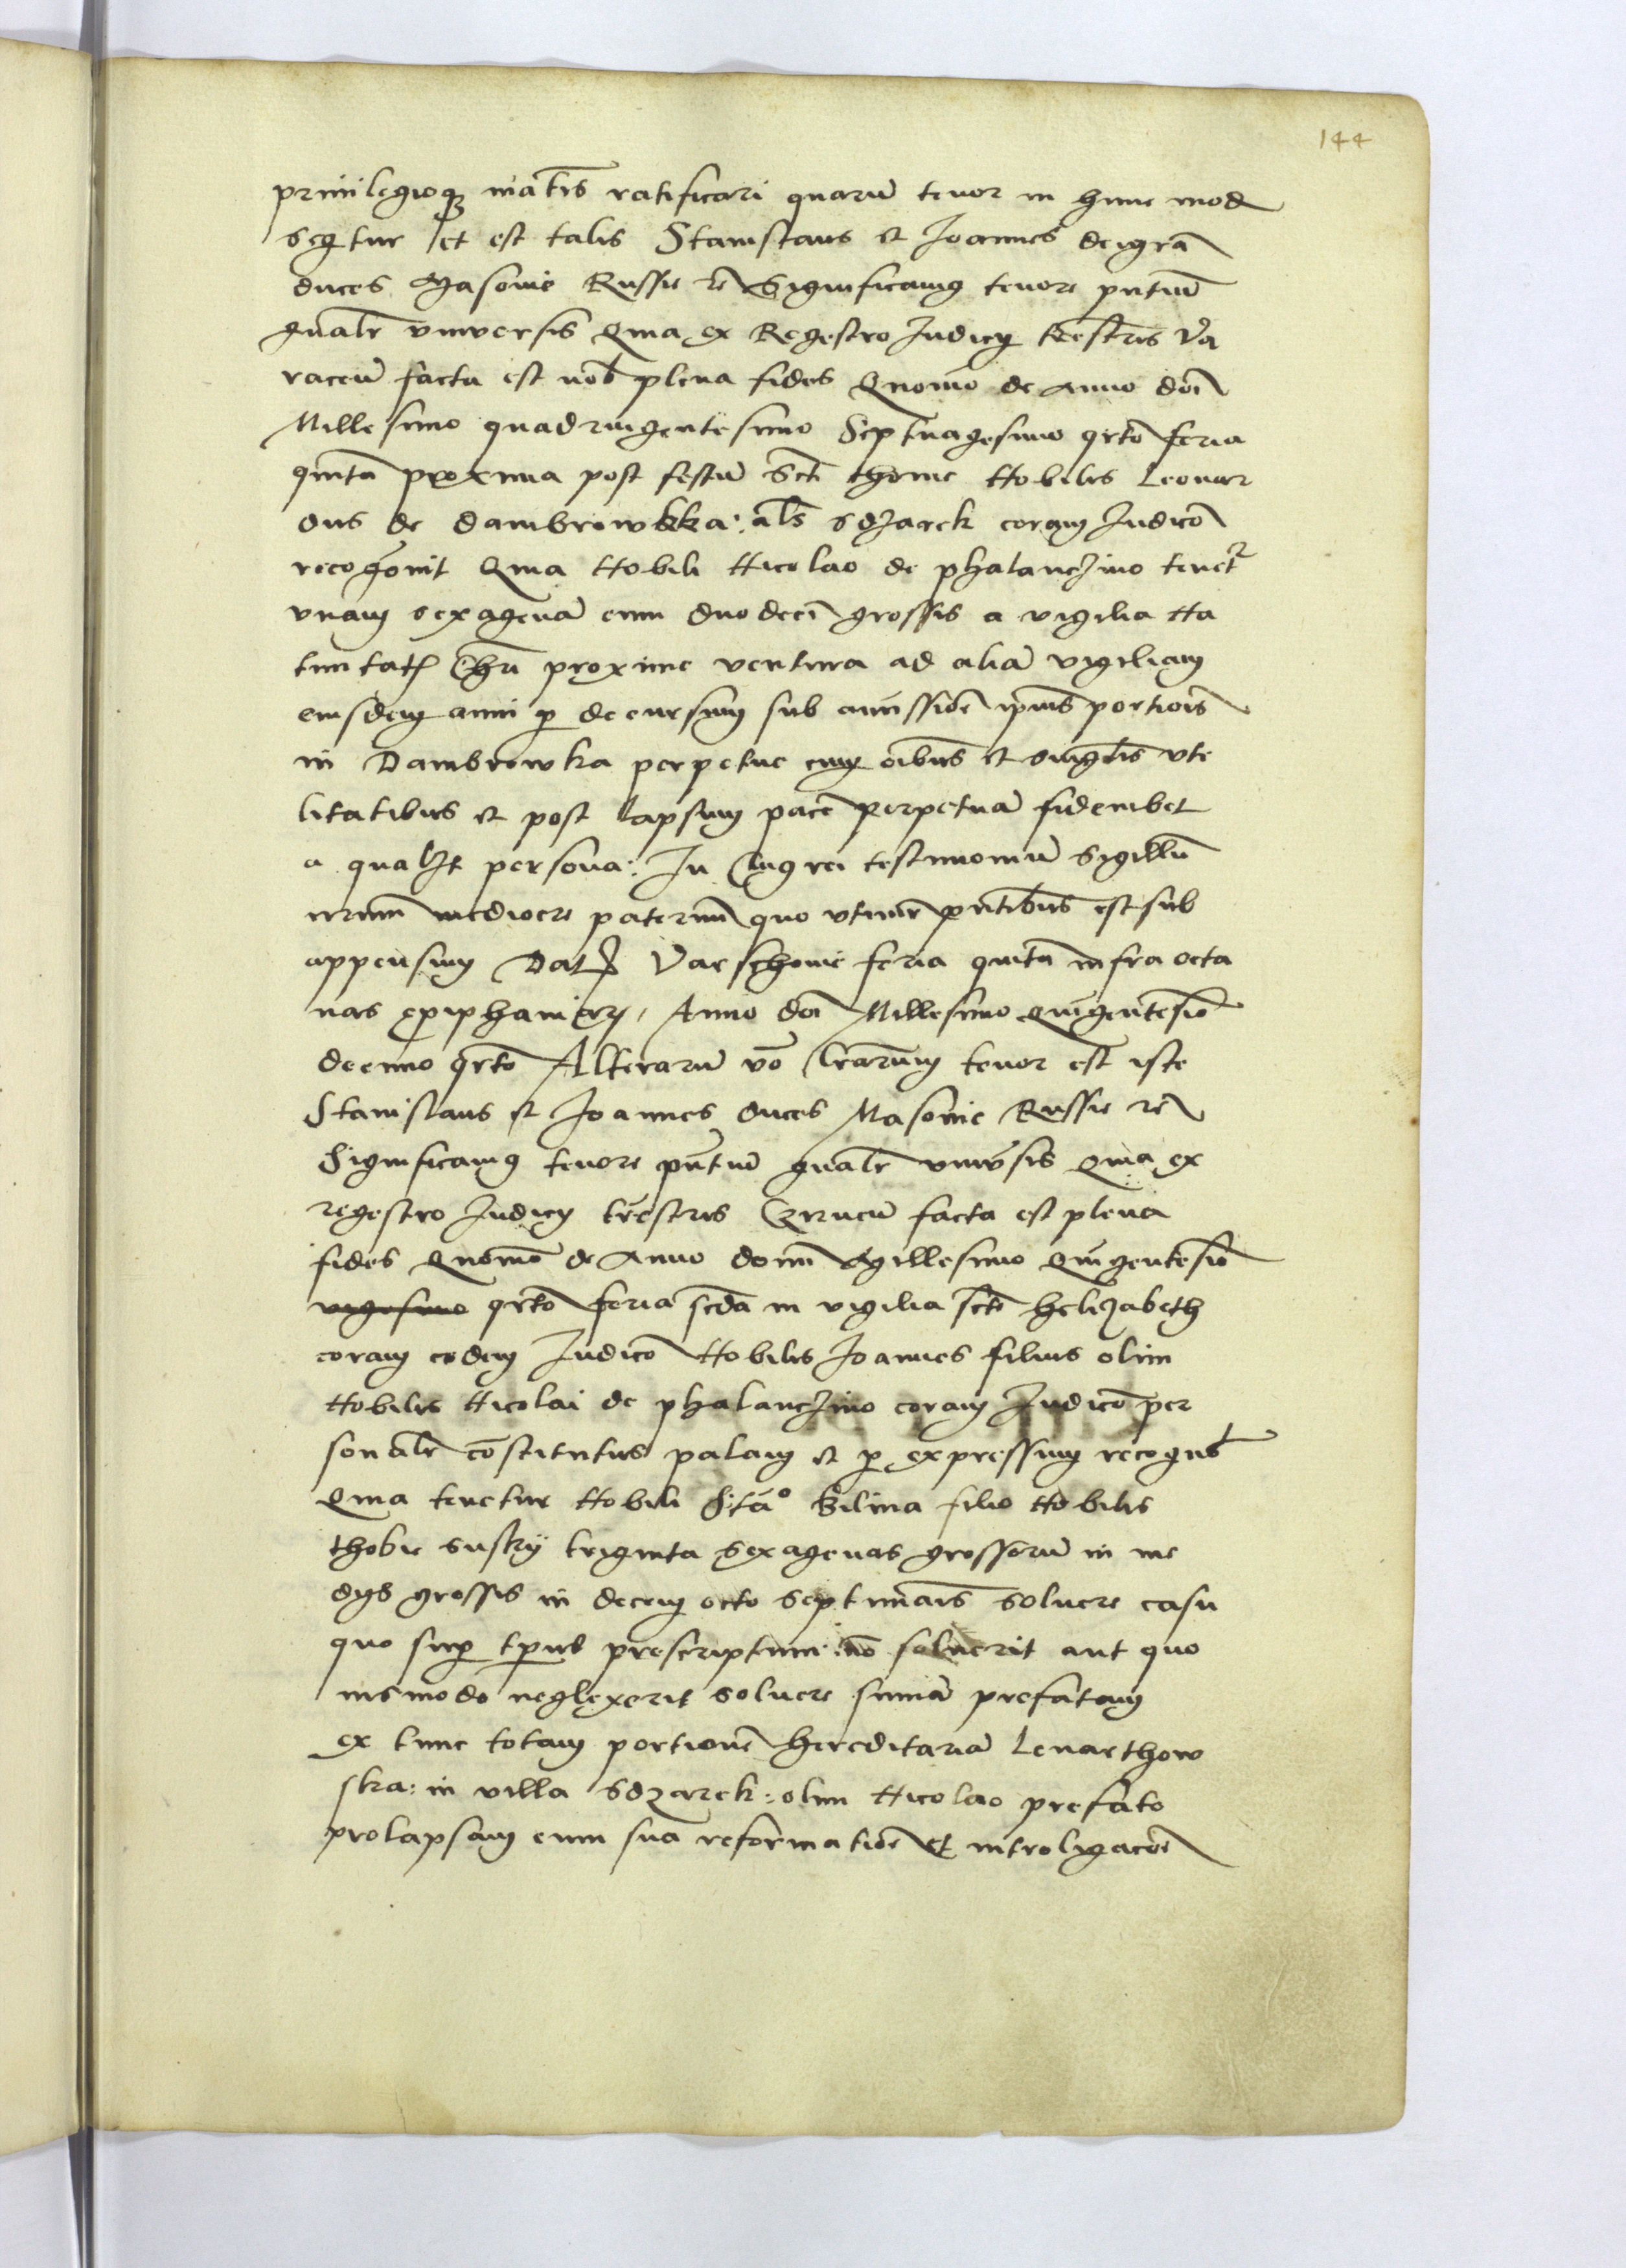 144
priuilegioqȝ mat̄ris ratificari quarū tenor in hunc mod
seqtur et est talis Stanislaus et Joannes dei gr̄a
duces Masouie Russie rē Significamꝯ tenore pn̄tium
gn̄alr̄ vniuersis Quia ex Regestro Judicij tr̄estris Va
raceñ facta est nob̄ plena fides Quomō de Anno dōi
Millesimo quadringentesimo Septuagesimo qrto feria
quinta proxima post festū Sct̄i thome Nobilis Leonar
dus de dambrowkka: al̄s sdzarek coram Judicō
recognouit Quia Nobili Nicolao de phalanczino tenetr
vnam sexagenā cum duodecī grossis a vigilia Na
tiuitat̄ Chrī proxime ventura ad aliā vigiliam
eiusdem anni ꝑ decursum sub amissiōe ip̄ius portiōis
in Dambrowka perpetue cum oībus et singl̄is vte
litatibus et post lapsum pacē perpetuā fideiubet
a qualzt persona: In Cuiꝯ rei testimoniū Sigillū
nr̄um mediocre paternū quo vtimr̄ pn̄tibus est sub
appensum Dat̄ Varschouie feria quinta infra octa
uas epiphaniarū, Anno dōi Millesimo Quīgentesiō
decimo qrto Alterarū vō lr̄arum tenor est iste
Stanislaus et Joannes duces Masouie Russie rē
Significamꝯ tenore pn̄tiū gn̄alr̄ vniv̄sis Quia ex
regestro Judicij tr̄estris Czrucn̄ facta est plena
fides Quomō de Anno domī Millesimo Quīgentesiō
vigesimo qrto feria scd̄a in vigilia sct̄e helizabeth
coram eodem Judicō Nobilis Joannes filius olim
Nobilis Nicolai de phalanczino coram Judicō per
sonalr̄ cōstitutus palam et ꝑ expressum recognoٔ
Quia tenetur Nobili Sta° Bilina filio Nobilis
thobie suskÿ triginta sexagenas grossorū in me
dijs grossis in decem octo septimāis soluere casu
quo suꝑ tp̄us prescriptum nō soluerit aut quo
uismodo neglexerit soluere sumā prefatam
ex tunc totam portionē hereditariā Lenarthow
ska: in villa Sdzarek: olim Nicolao prefato
prolapsam cum sua reformatiōe et introligacōe